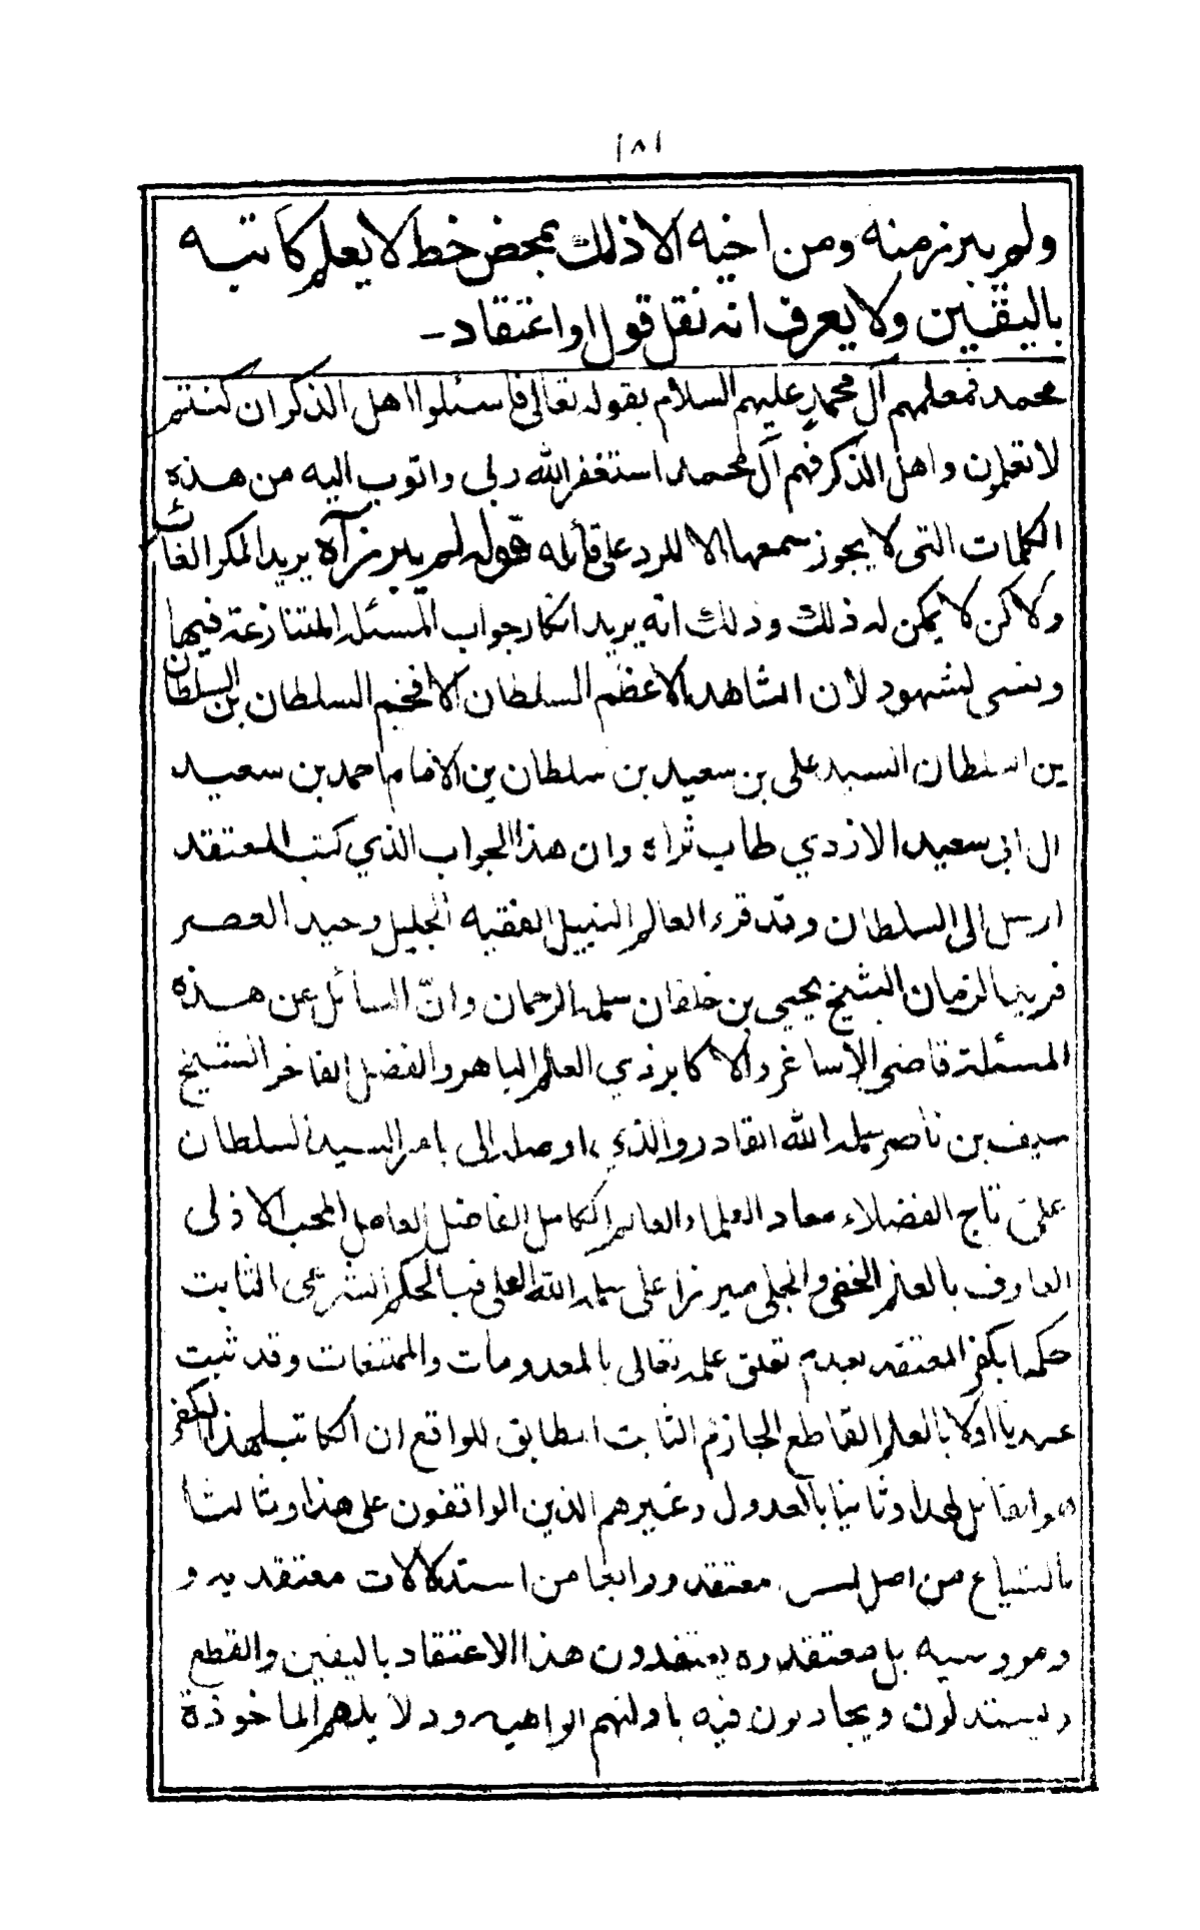 ١٨١
ولم يبرز منه ومن اخيه الا ذلك بمحض خط لا يعلم كاتبه
باليقين ولا يعرف انه نقل قول او اعتقاد -
محمد فمعلمهم آل محمد عليهم السلام بقوله تعالى فاسئلوا اهل الذكر ان كنتم
لا تعلمون واهل الذكر فهم آل محمد استغفر الله ربي واتوب اليه من هذه
الكلمات التى لا يجوز سمعها الا للرد على قائله قوله لم يبرز آه يريد المكر الغائ
ولاكن لا يمكن له ذلك وذلك انه يريد انكار جواب المسئله المتنازعة فيها
ونسى لشهود لأن المشاهد الاعظم السلطان الافخم السلطان بن السلطان
بن السلطان السيد على بن سعيد بن سلطان بن الامام احمد بن سعيد
ال ابى سعيد الازدي طاب ثراه وان هذا الجواب الذي كتب المعتقد
ارسل الى السلطان وقد قرء العالم النبيل الفقيه الجليل وحيد العصر
فريد الزمان الشيخ يحيى بن خلفان سلمه الرحمان وانّ السائل عن هذه
المسئلة قاضى الاساغر والاكابر ذي العلم الباهر والفضل الفاخر الشيخ
سيف بن ناصر سلمه الله القادر والذى اوصله الى بامر السيد السلطان
على تاج الفضلاء معاد العلماء العالم الكامل الفاضل العامل المحب الازلى
العارف بالعلم الخفى والجلى ميرزا على سلمه الله العلى فبالحكم الشرعى الثابت
حكمنا بكفر المعتقد بعدم تعلق علمه تعالى بالمعدومات والممتنعات وقد ثبت
عندنا اولا بالعلم القاطع الجازم الثابت المطابق للواقع ان الكاتب لهذا الكفر
هو القائل لهذا وثانيا بالعدول وغيرهم الذين الواقفون على هذا وثالثا
بالشياع من اصل معتقد ورابعا من استدلالات معتقديه و
بل معتقدوه يعتقدون هذا الاعتقاد باليقين والقطع
ويستدلون ويجادلون فيه بادلتهم الواهيه ودلايلهم الماخوذة